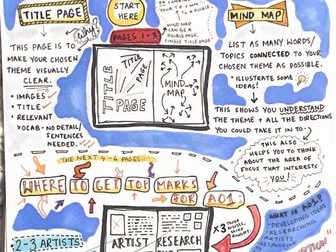 TITLE PAGE
START
HERE
MIND MAP
Why?
PAGES 1-3
THIS PAGE IS TO
MAKE YOUR CHOSEN
THEME VISUALLY
CLEAR.
• IMAGES
• TITLE
• RELEVANT
VOCAB - NO DETAIL/
SENTENCES
NEEDED.
TITLE
TITLE
PAGE
TITLE
PAGE
MIND
MAP
LIST AS MANY WORDS/
TOPICS CONNECTED TO YOUR
CHOSEN THEME AS POSSIBLE.
• ILLUSTRATE SOME
IDEAS!
THIS SHOWS YOU UNDERSTAND
THE THEME + ALL THE DIRECTIONS
YOU COULD TAKE IT IN TO.
THIS ALSO
HELPS YOU TO
THINK ABOUT THE
AREA OF
FOCUS THAT
INTERESTS
YOU!
THE NEXT 4-6 PAGES
WHERE TO GET TOP MARKS
FOR AO1
2-3 ARTISTS
ARTIST RESEARCH
x3
WHAT IS AO1?
DEVELOPING IDEAS
RESEARCHING
ARTISTS